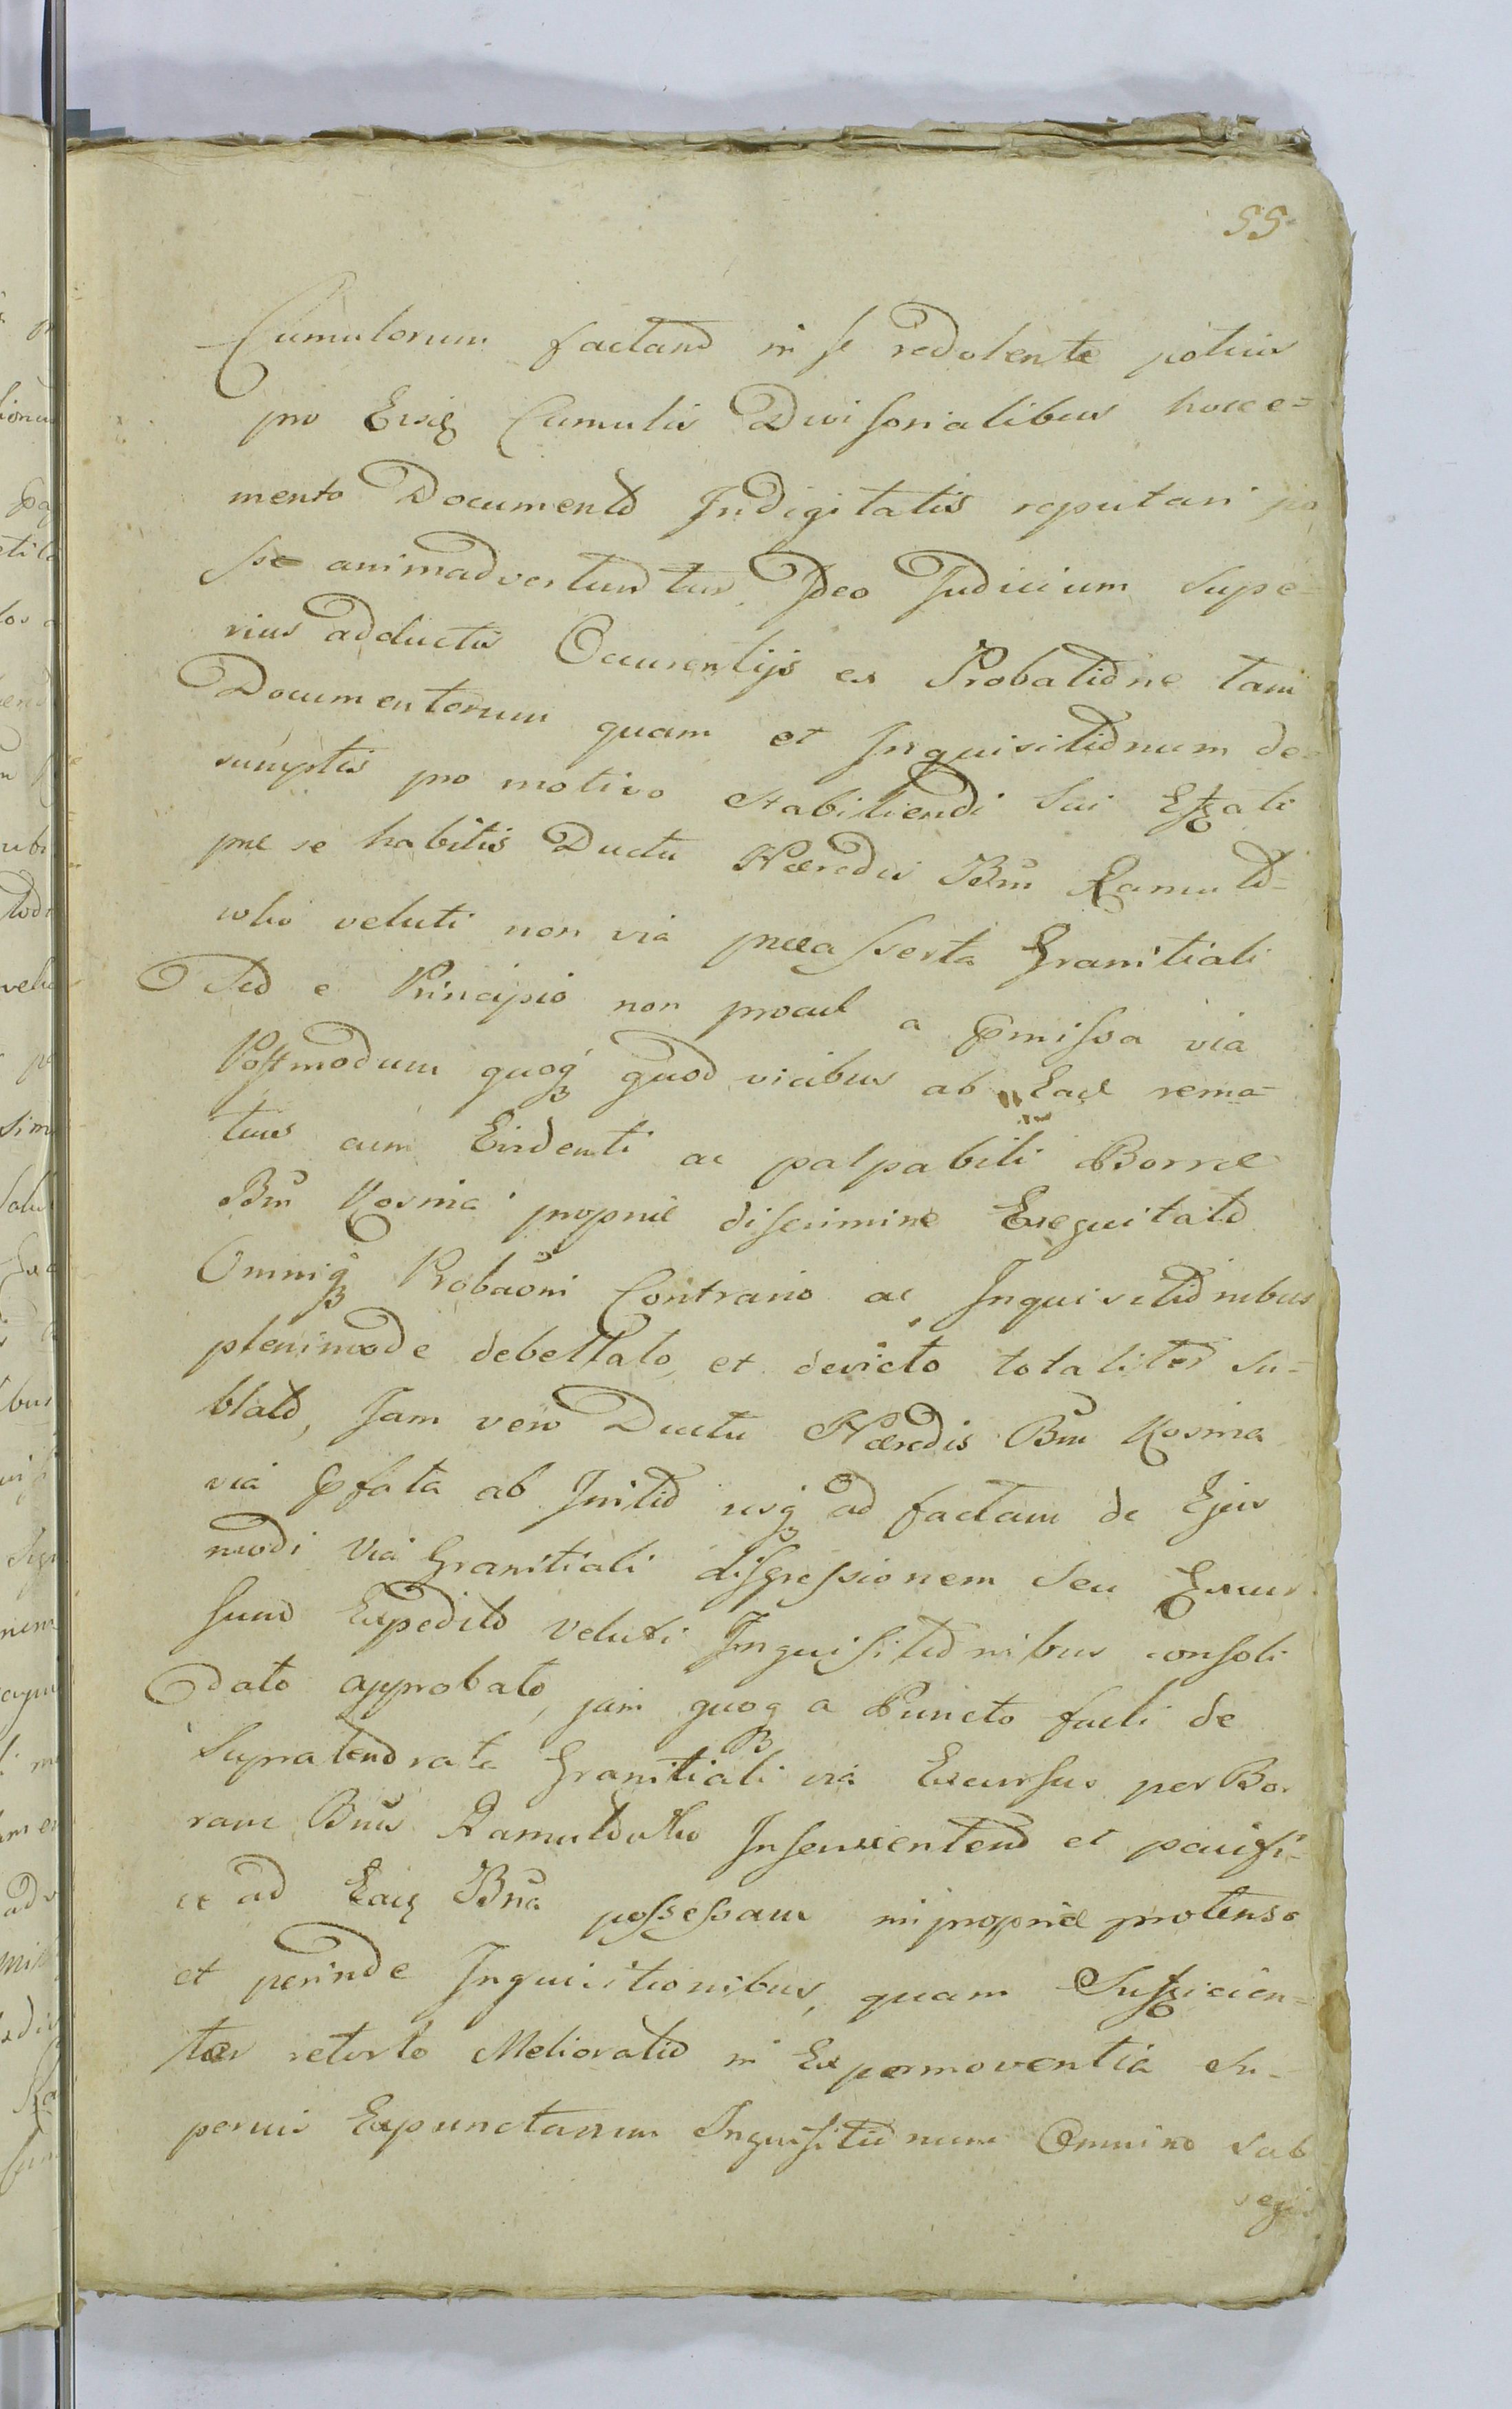 55
Cumulorum factand in se redolente potius
pro Eisq Cumulis Divisorialibus hocce=
mento Documento Indigitatis reputari po
sse animadvertuntur Ideo Judicium supe-
rius adductis Occurentijs ex Probatione tam
Documentorum quam et Inquisitionum de-
sumptis pro motivo stabiliendi sui
præ se habitis Ductu Hæredis Bm
veluti non via præasserta Granitiali
Sed e Principio non procul a Pmissa via
Postmodum quoq quod vicibus ab Ead remo-
tius cum Evidenti ac palpabili Borræ
Bm Kosina propriæ discrimine Exequitato
Omniq Probaoni Contrario ac Inquisitionibus
plenimode debellato, et devicto totaliter su=
blato, Jam vero Ductu Hæredis Bm Kosina
via Pfata ab Initio usq ad factam de Ejus
modi Via Granitiali disgressionem seu Excur
sum Expedito veluti Inquisitionibus consoli
dato approbato, jam quoq a Puncto facti de
Granitiali via Excursus per Bor
ram Bnis et
ad Eaq Bna possessam improprie protenso
et perinde Inquisitionibus, quam Sufficien=
ter retorto Melioratio in Expermoventia su-
perius Expunctarum Inquisitionum Omnino sub